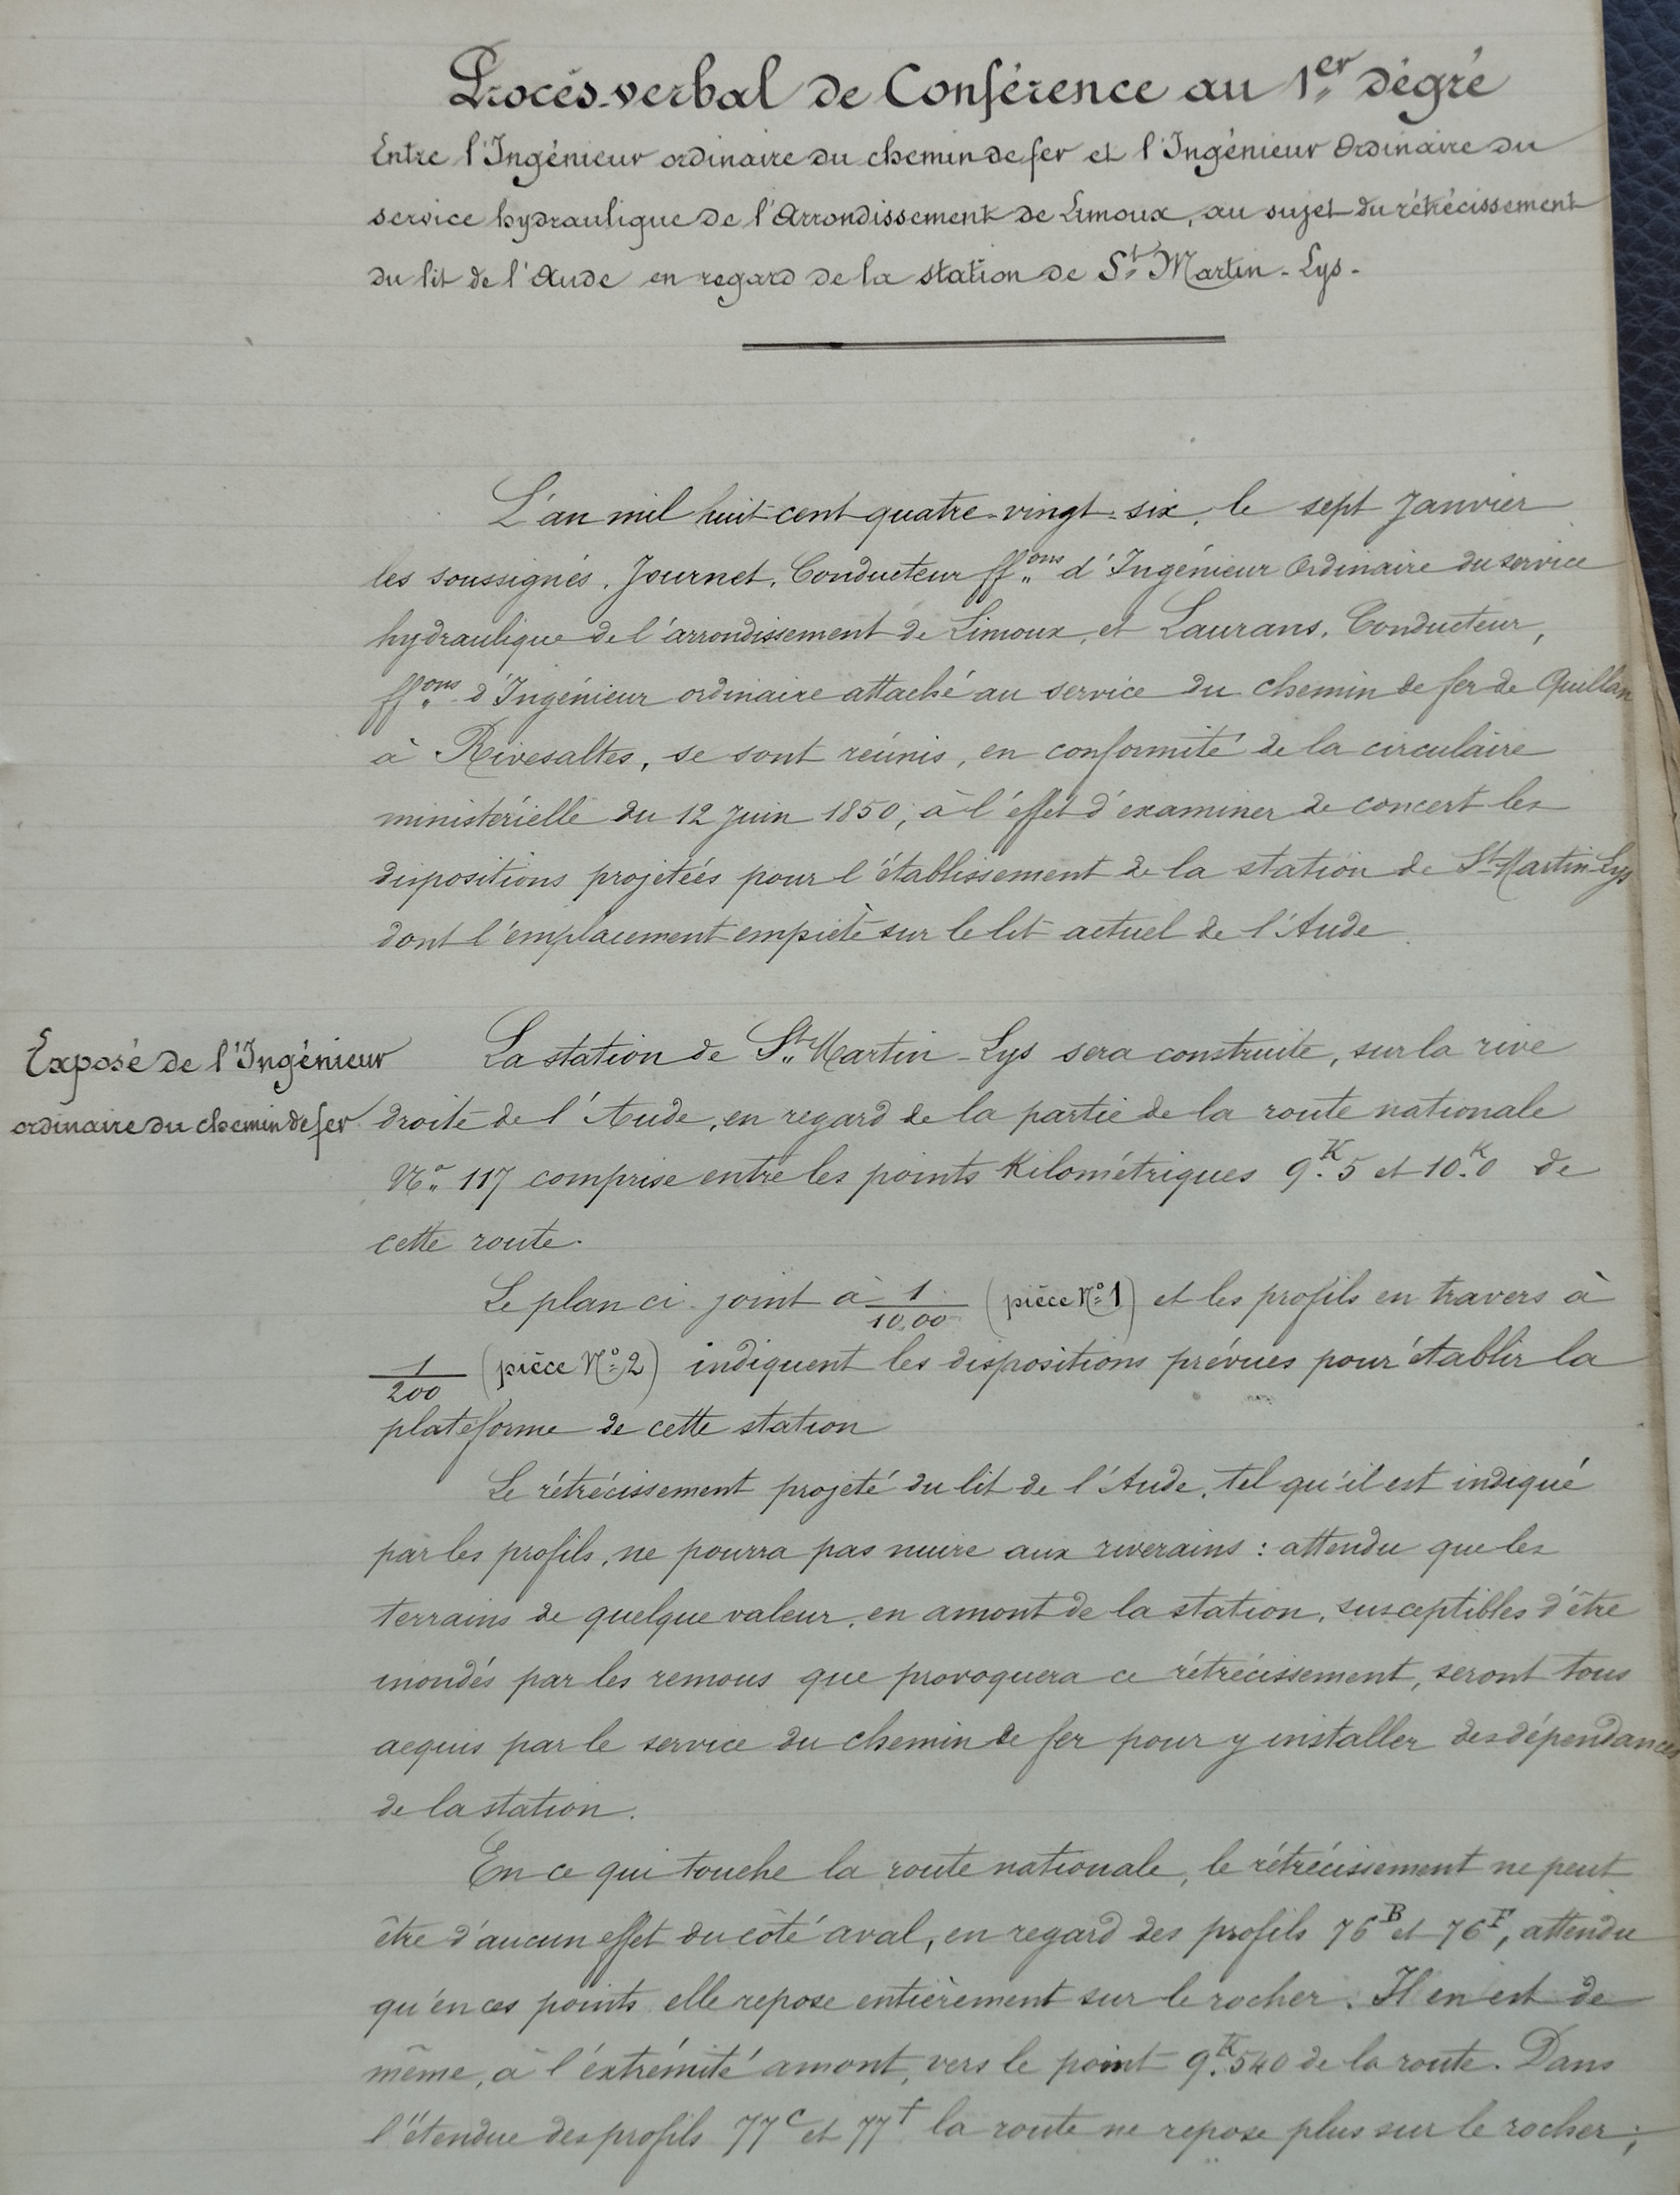 Procès-verbal de Conférence au 1er dégré
Entre l'Ingénieur ordinaire du chemin de fer et l'Ingénieur Ordinaire du
service hydraulique de l'Arrondissement de Limoux, au sujet du rétrécissement
du lit de l'Aude en regard de la station de St Martin-Lys.
L'an mil huit cent quatre-vingt-six, le sept Janvier
les soussignés, Journet, Conducteur ffons d'Ingénieur Ordinaire du service
hydraulique de l'arrondissement de Limoux, et Laurans, Conducteur,
ffons d'Ingénieur ordinaire attaché au service du chemin de fer de Quillan
à Rivesaltes, se sont réunis, en conformité de la circulaire
ministérielle du 12 Juin 1850, à l'effet d'examiner de concert les
dispositions projetées pour l'établissement de la station de St-Martin-Lys
dont l'emplacement empiète sur le lit actuel de l'Aude.
Exposé de l'Ingénieur
ordinaire du chemin de fer
La station de St Martin-Lys sera construite, sur la rive
droite de l'Aude, en regard de la partie de la route nationale
No 117 comprise entre les points Kilométriques 9K.5 et 10K.0 de
cette route.
Le plan ci-joint à 1/1000 (pièce No 1) et les profils en travers à
1/200 (pièce No 2) indiquent les dispositions prévues pour établir la
plateforme de cette station
Le rétrécissement projeté du lit de l'Aude, tel qu'il est indiqué
par les profils, ne pourra pas nuire aux riverains : attendu que les
terrains de quelque valeur, en amont de la station, susceptibles d'être
inondés par les remous que provoquera ce rétrécissement, seront tous
acquis par le service du chemin de fer pour y installer des dépendances
de la station.
En ce qui touche la route nationale, le rétrécissement ne peut
être d'aucun effet du côté aval, en regard des profils 76B et 76F, attendu
qu'en ces points elle repose entièrement sur le rocher. Il en est de
même, à l'éxtrémité amont, vers le point 9K.540 de la route. Dans
l'étendue des profils 77c et 77f la route ne repose plus sur le rocher;